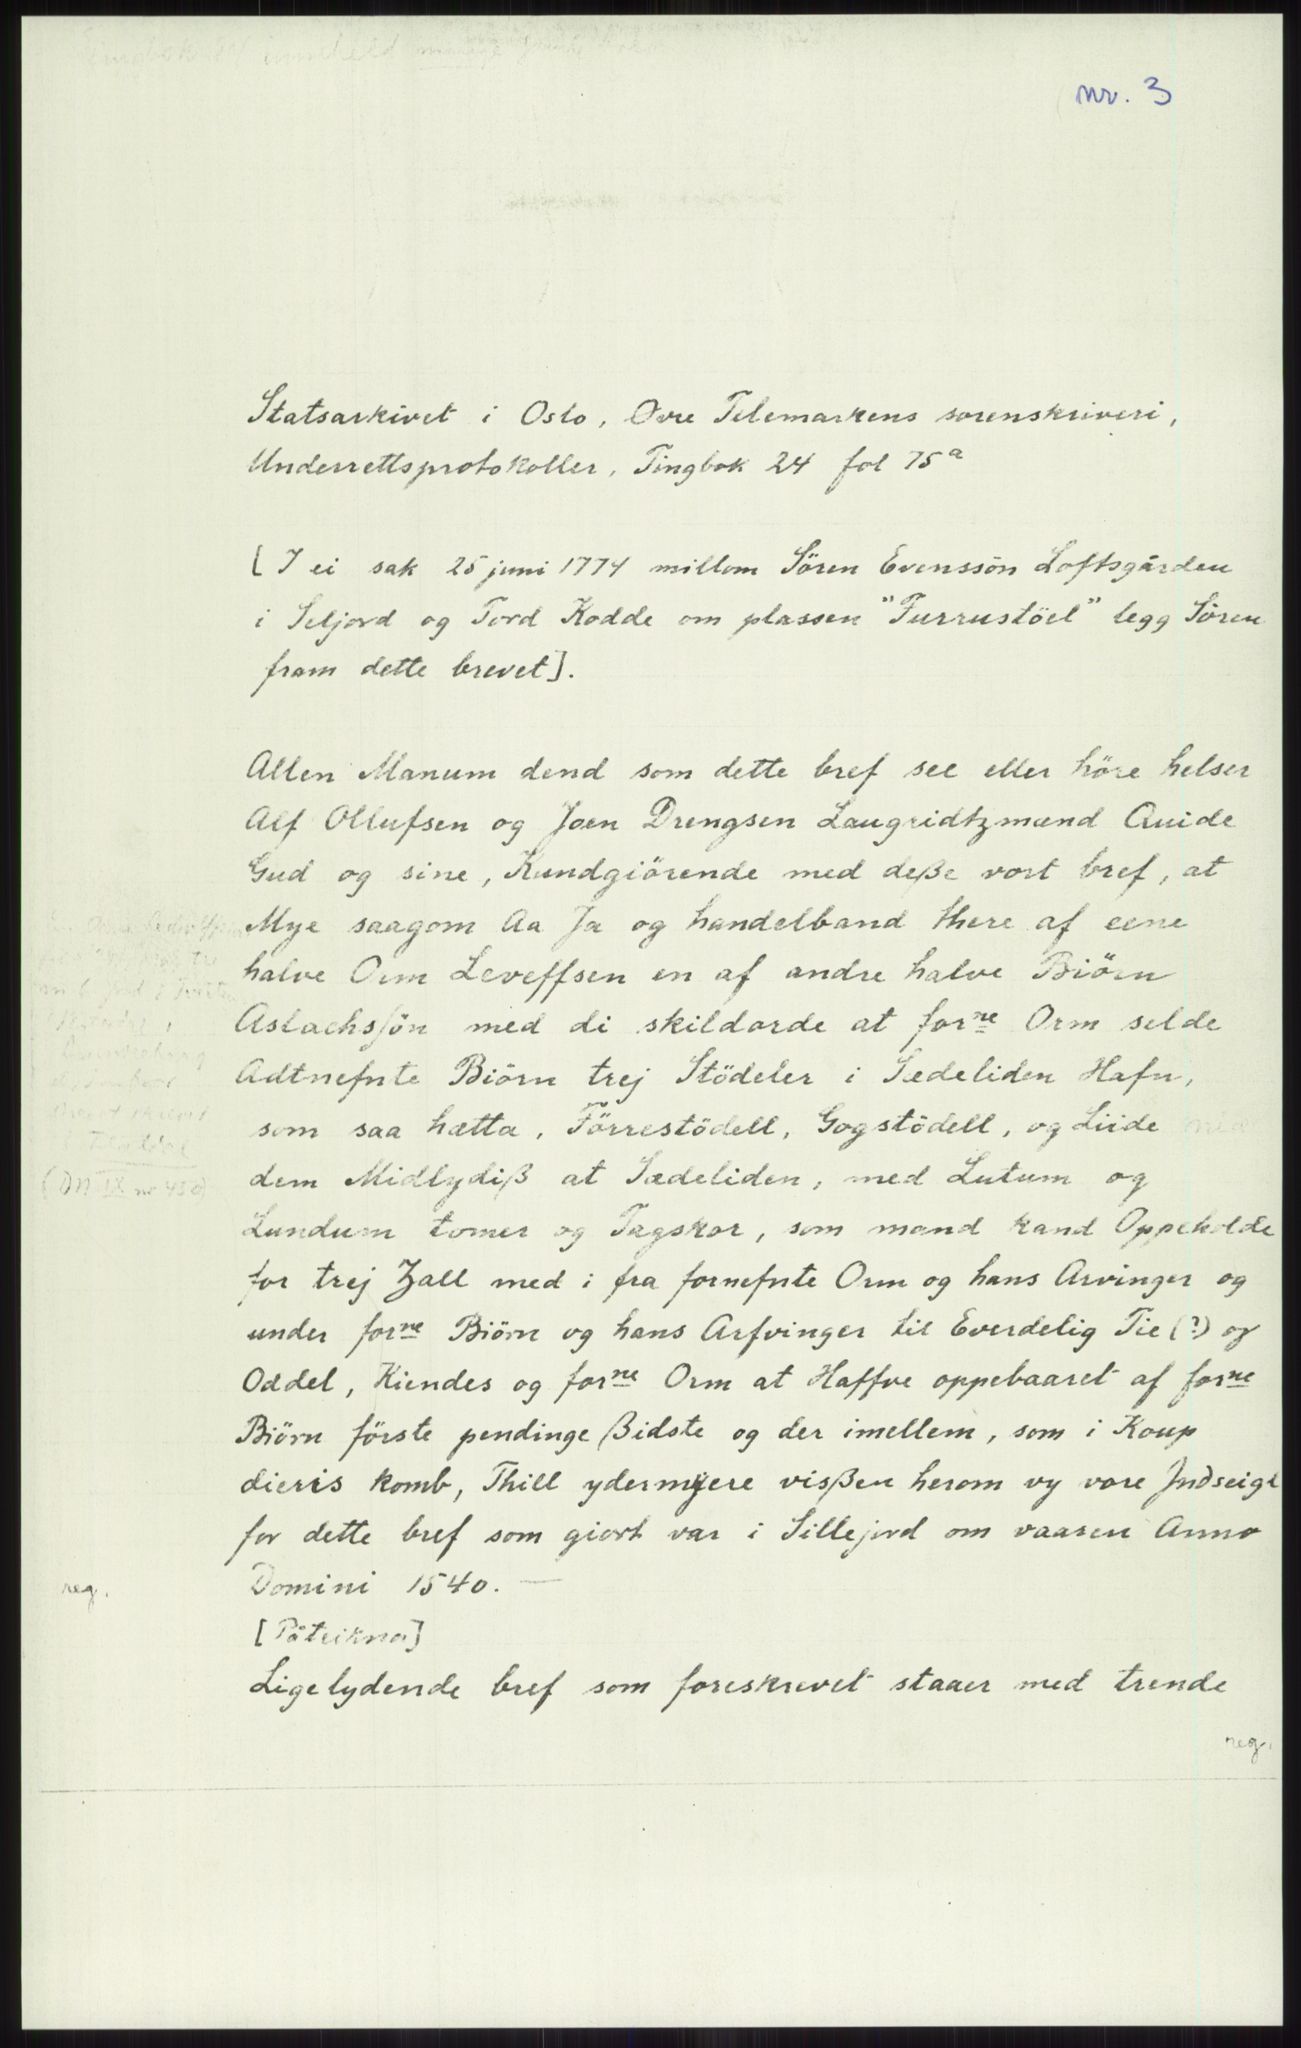 nr. 3
Statsarkivet i Oslo, Øvre Telemarkens sorenskriveri,
Underrettsprotokoller, Tingbok 24 fol 75a
[I ei sak 25 juni 1774 millom Sören Evenssön Loftsgården
i Seljord og Tord Kodde om plassen "Furrustöel" legg Sören
fram dette brevet].
Allen Manum dend som dette bref see eller höre helser
Alf Ollufsen og Joen Drengsen Laugridtzmænd Quide
Gud og sine, Kundgiörende med deße vort bref, at
Mye saagom Aa Ja og handelband there af eene
halve Orm Leveffsen en af andre halve Biörn
Aslachsjön med di skildorde at forne Orm selde
Adtnefnte Biörn trej Stödeler i Sædeliden Hafn,
som saa hætta, Förrestödell, Gogstödell, og Liide
dem Midlydiß at Sædeliden, med Lutum og
Lundum tomer og Tagskor, som mand kand Oppeholde
for trej Zall med i fra fornefnte Orm og hans Arvinger og
under forne Biörn og hans Arfvinger til Everdelig Tie (?) og
Oddel, Kiendes og forne Orm at Haffve oppebaaret af forne
Biörn förste pendinge ßidste og der imellem, som i Koup
dieris komb, Thill ydermyere vißen herom vy vore Indseigl
for dette bref som giort var i Sillejord om vaaren Anno
Domini 1540. —
reg.
[Påteikna]
Ligelydende bref som foreskrevet staaer med trende
reg.
(DN IX nr